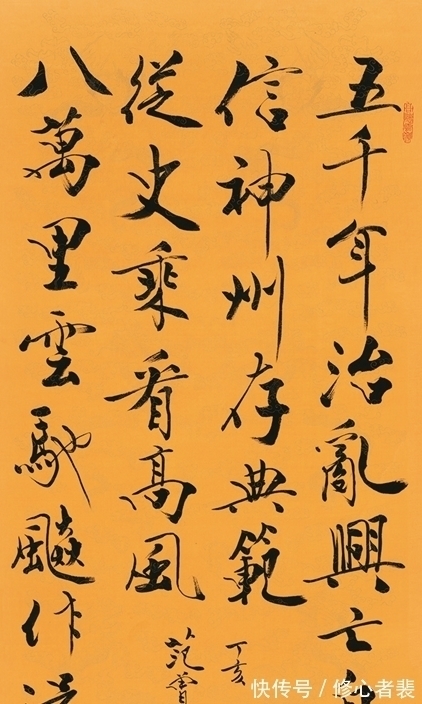 五千年治亂興亡
信神州存典範
八萬里雲馳飈作
從史乘看高風
丁亥
范曾
快传号 / 修心者裴